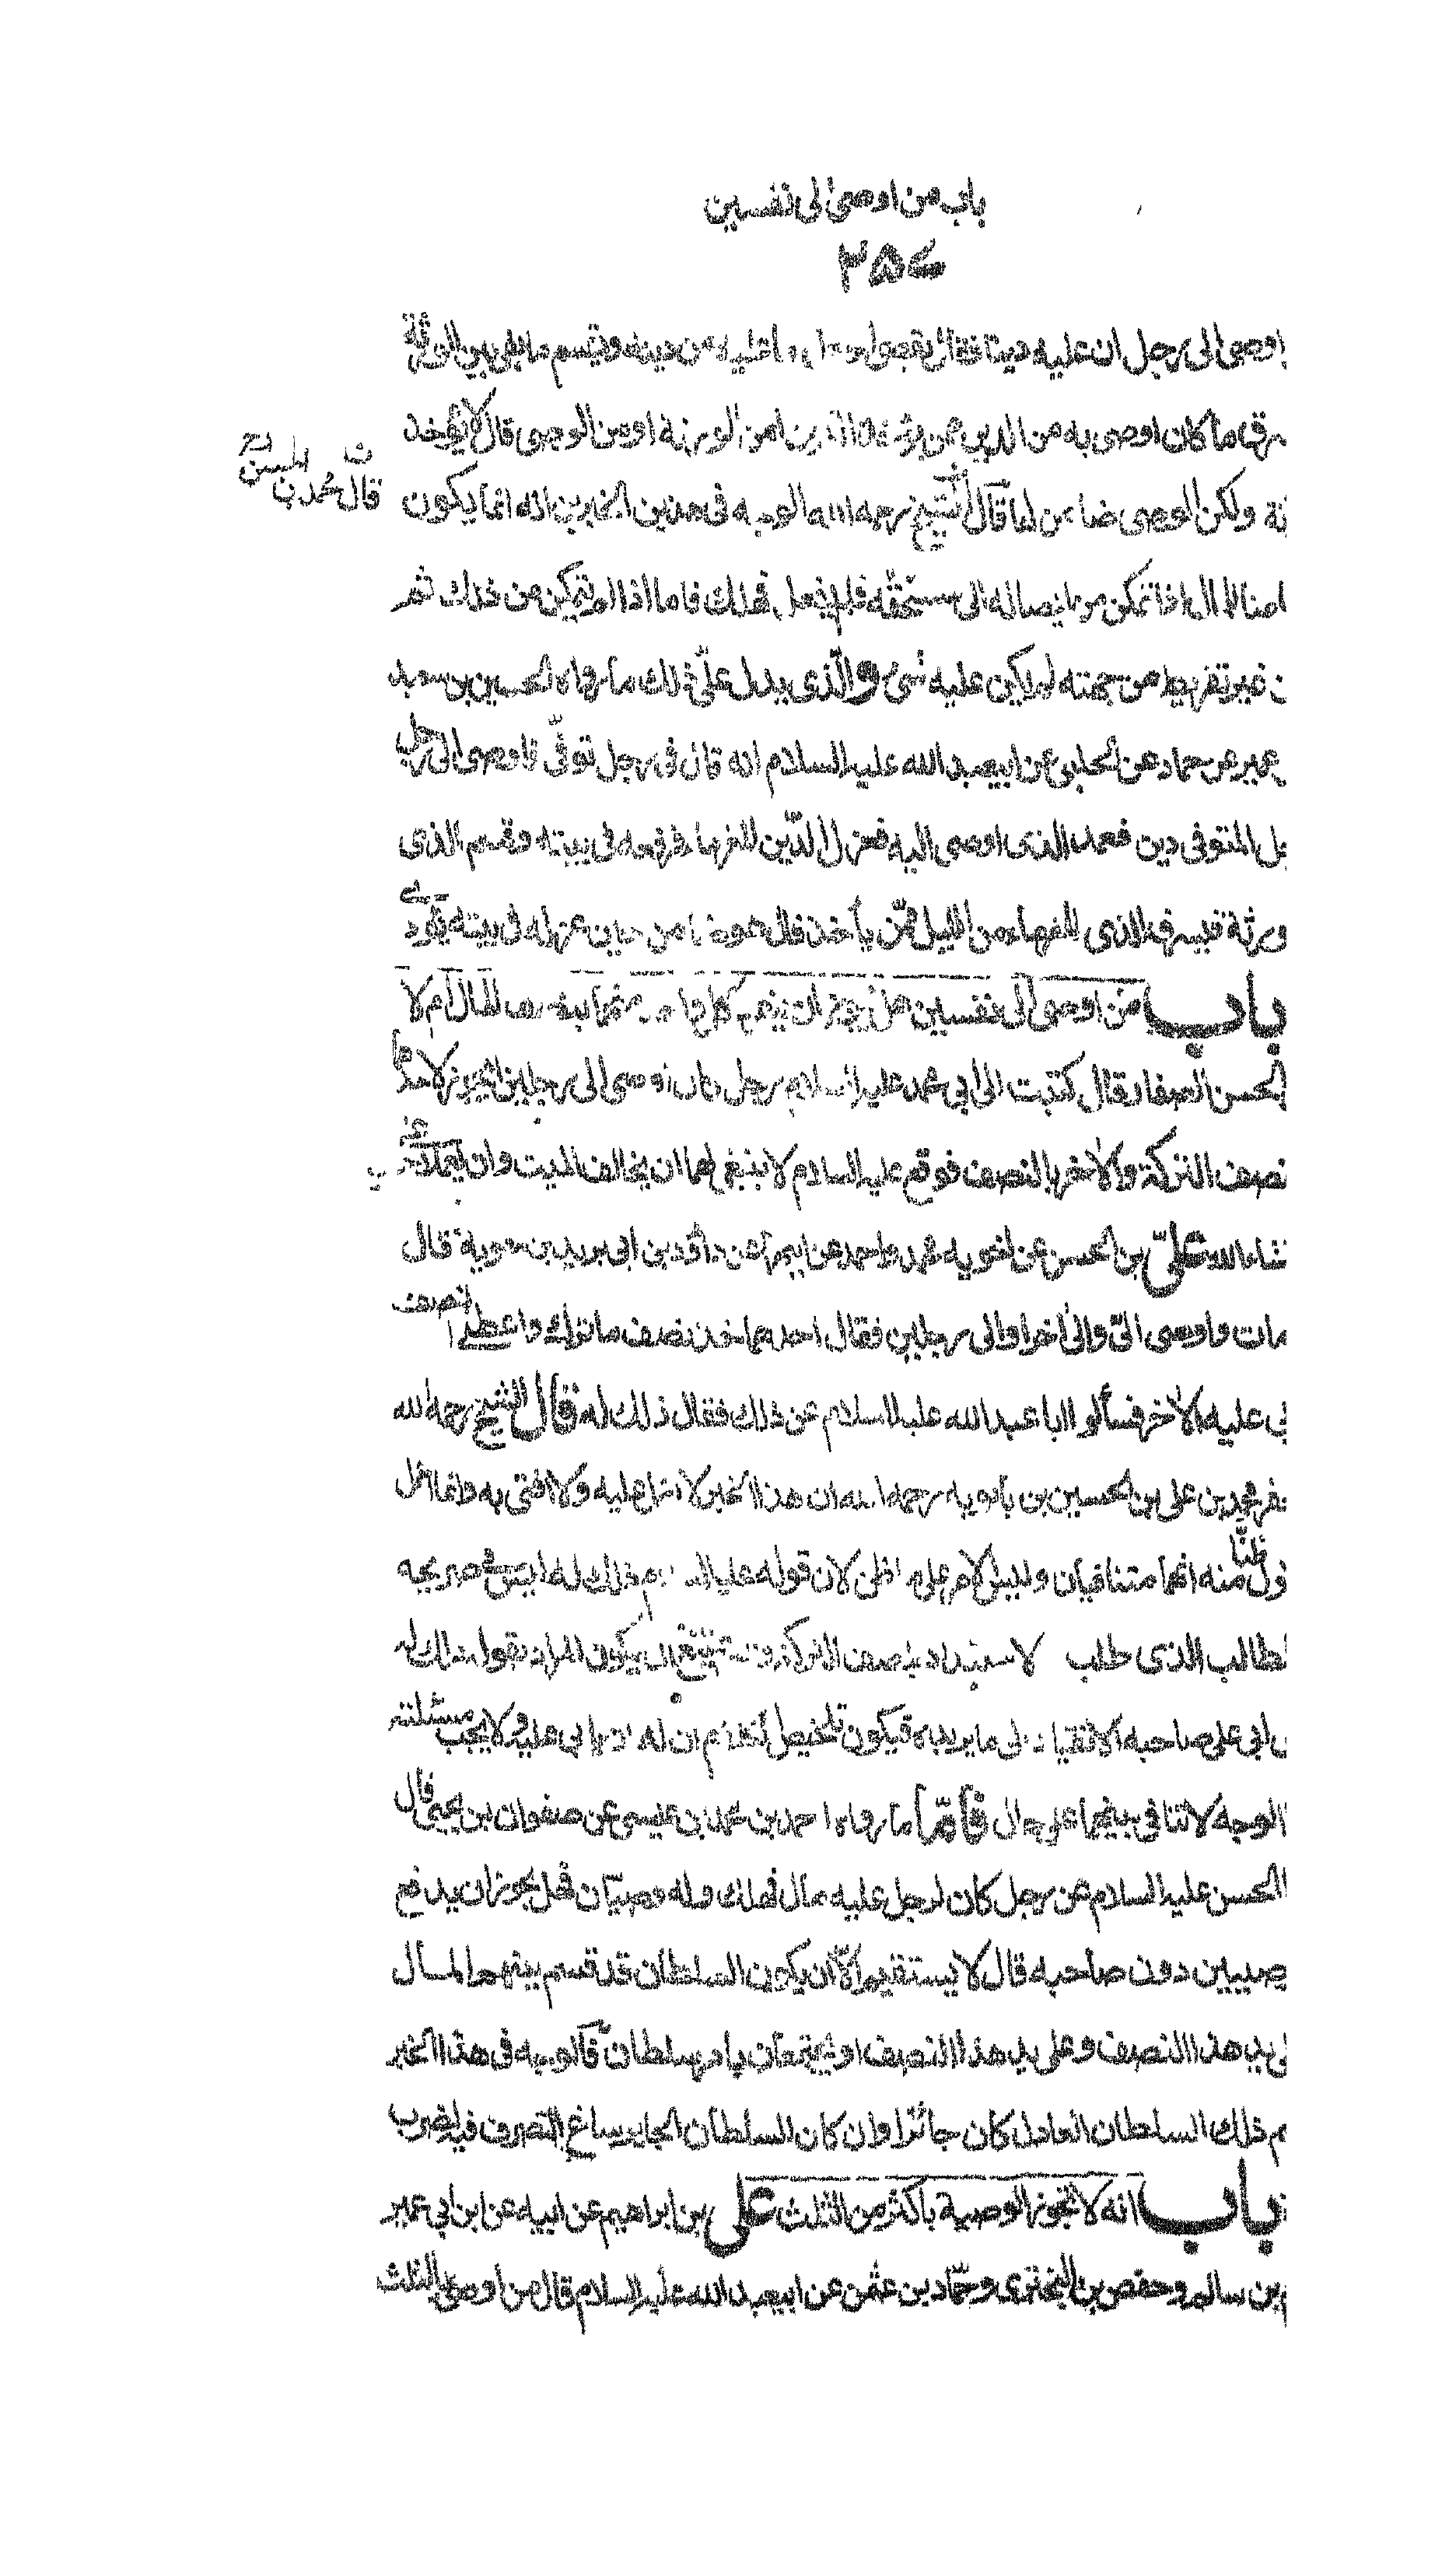 باب من اوصى الى نفسين
۲۵۶
اوصى الى رجل ان عليه دينا فقال يقضى الرجل ما عليه من دينه ويقسم ما بقى بين الورثة
سرق ما كان اوصى به من الدين ممن يؤخذ الدين امن الورثة او من الوصى قال لا يؤخذ
ثة ولكن الوصى ضامن لها قال الشيخ رحمه الله الوجه فى هذين الخبرين انه انما يكون
قال محمد بن الحسن
ضامنا للمال اذا تمكن من ايصاله الى مستحقه فلم يفعل فهلك فاما اذا لم يتمكن من ذلك ثم
ن غير تفريط من جهته لم يكن عليه شئ والذى يدل على ذلك ما رواه الحسين بن سعيد
عمير عن حماد عن الحلبى عن ابيعبد الله عليه السلام انه قال فى رجل توفى فاوصى الى رجل
جل المتوفى دين فعمد الذى اوصى اليه فعزل الدين للغرماء فرفعه فى بيته وقسم الذى
ورثة فيسرق الذى للغرماء من الليل ممن يأخذ قال هو ضامن حين عزله فى بيته يؤدى
باب من اوصى الى نفسين هل يجوز ان ينفرد كل واحد منهما بنصف المال ام لا
الحسن الصفار قال كتبت الى ابى محمد عليه السلام رجل مات اوصى الى رجلين ايجوز لاحدهما
نصف التركة والاخر بالنصف فوقع عليه السلام لا ينبغى لهما ان يخالفا الميت وان يعملا
شاء الله على بن الحسن عن اخويه محمد واحمد عن ابيهما عن داود بن ابى يزيد بن معوية قال
مات واوصى الى والى اخر او الى رجلين فقال احدهما خذ نصف ما ترك واعطنى النصف
بى عليه الاخر فسألوا ابا عبد الله عليه السلام عن ذلك فقال ذلك له قال الشيخ رحمه الله
عفر محمد بن على بن الحسين بن بابويه رحمه الله ان هذا الخبر لا اعمل عليه ولا افتى به وانما اعمل
ول ظنا منه انهما متنافيان وليس الامر على ما ظن لان قوله عليه السلام ذلك له ليس فى صريحه
لطالب الذى طلب الاستبداد بنصف التركة وليس يمتنع ان يكون المراد بقوله ذلك له
ى ابى على صاحبه الانقياد الى ما يريده فيكون تلخيص الكلام ان له ان يأبى عليه ولا يجب مسئلته
الوجه لا تنافى بينهما على حال فأما ما رواه احمد بن محمد بن عيسى عن صفوان بن يحيى قال
الحسن عليه السلام عن رجل كان لرجل عليه مال فهلك وله وصيان فهل يجوز ان يدفع
صيين دون صاحبه قال لا يستقيم الا ان يكون السلطان قد قسم بينهما المال
لى يد هذا النصف وعلى يد هذا النصف او يجتمعان بامر سلطان فالوجه فى هذا الخبر
م ذلك السلطان العادل كان جائزا وان كان السلطان الجاير ساغ التصرف فيه لضرب
باب انه لا تجوز الوصية باكثر من الثلث على بن ابراهيم عن ابيه عن ابن ابى عمير
بن سالم وحفص بن البخترى وحماد بن عثمن عن ابيعبد الله عليه السلام قال من اوصى بالثلث